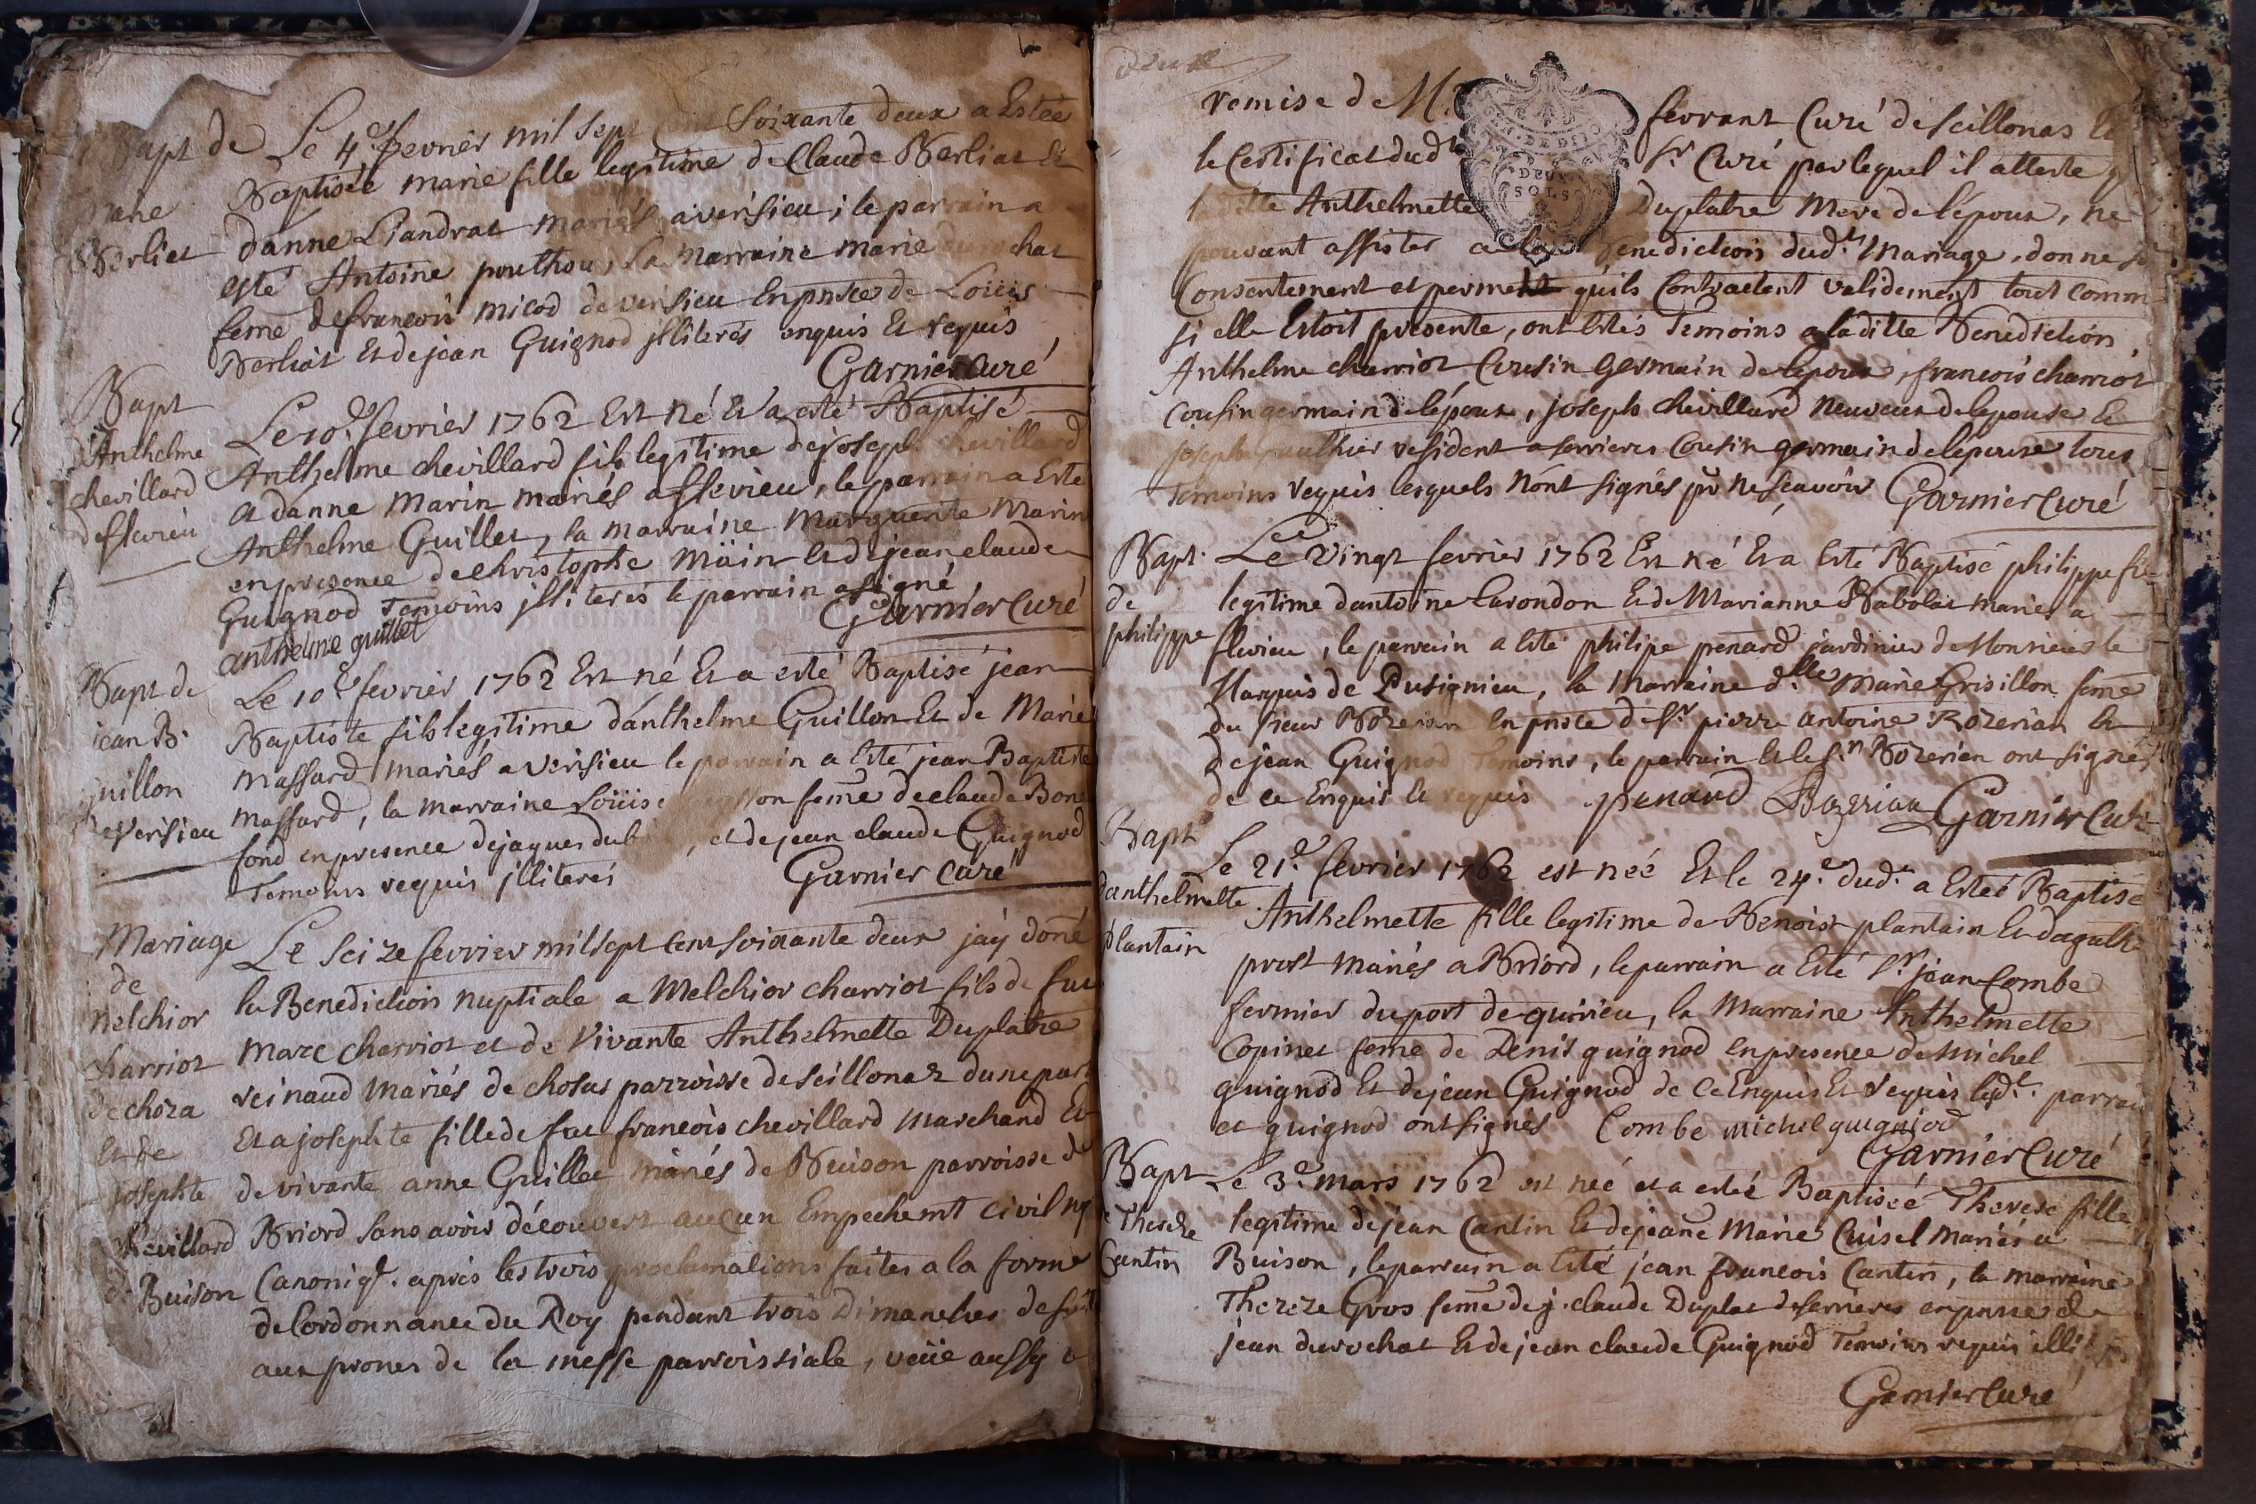 Bapt de
marie
Berliet
Le 4e fevrier mil sept cent Soixante deux a Estée
Baptisée marie fille legitime de Claude Berliat Et
d'anne Liandrat mariés a verisieu ; le parrain a
esté Antoine pouthou, la marraine marie durochat
feme de francois micod de verisieu En pnsce de Loüis
Berliat Et de jean Guignod jlliterés enquis Et requis
Garnier curé
Bapt
d'Anthelme
chevillard
de flevrieu
Le 10e fevrier 1762 Est né Et a esté Baptisé
Anthelme chevillard fils legitime de joseph chevillard
et d'anne Marin mariés a flevrieu, le parrain a Esté
Anthelme Guillet, la marraine Marguerite Marin
en presence de christophe Main et de jean claude
Guignod Temoins jlliterés le parrain a signé
anthelme guillet Garnier Curé
Bapt de
jean B.
guillon
de Verisieu
Le 10e fevrier 1762 Est né Et a esté Baptisé jean
Baptiste fils legitime d'anthelme Guillon Et de Marie
Massard mariés a verisieu le parrain a Esté jean Baptiste
massard, la marraine Loüise feme de claude Bone
fond en presence de jaques , et de jean claude Guignod
Temoins requis jlliterés Garnier curé
Mariage
de
Melchior
charriot
de choza
Et de
josephte
chevillard
de Buison
Le Seize fevrier mil sept Cent soixante deux j'ay doné
la Benediction nuptiale a Melchior charriot fils de feu
Marc charriot et de Vivante Anthelmette Duplatre
reinaud mariés de chosas parroisse de seillonaz d'une part
Et a josephte fille de feu françois chevillard Marchand Et
de vivante anne Guillet mariés de Buison parroisse de
Briord sans avoir découvert aucun Empechemt civil ny
Canoniqe. après les trois proclamations faites a la forme
de l'ordonnance du Roy pendant trois Dimanches de suite
aux prones de la messe parroissiale, veüe aussy la
remise de M. ferrant Curé de seillonas le
DEUX
SOLS
le Certificat dudt Sr. Curé par lequel il atteste que
laditte Anthelmette Duplatre Mere de l'époux, ne
pouvant assister a la Benediction dudt. Mariage, donne son
Consentement et permet quils Contractent validement tout comm
si elle Estoit presente, ont Estés Temoins a laditte Benediction
Anthelme charriot Cousin Germain de lepoux, francois charriot
Cousin germain de l'époux, joseph chevillard neuveu de lepouse Et
joseph gauthier resident a serrieres Cousin germain de l'épouse tous
Temoins requis lesquels n'ont signés pr ne sçavoir Garnier curé
Bapt.
de
philippe
Le Vingt fevrier 1762 Est né Et a Esté Baptisé philippe fils
legitime d'antoine Larondon Et de Marianne Babolat mariés a
flevrieu, le parrain a Esté philipe penard jardinier de Monsieur le
Marquis de Pusignieu, la Marraine dlle. Marie Grisillon feme
du sieur Bozerian En pnsce de Sr. pierre antoine Rozerian Et
de jean Guignod Temoins, le parrain Et le Sr. Bozerian ont signés
de ce Enquis Et requis penard Bozerian Garnier Curé
Bapt
d'anthelmette
plantain
Le 21e. fevrier 1762 est née Et le 24e. dudt. a Esteé Baptisé
Anthelmette fille legitime de Benoist plantain Et d'agathe
prost mariés a Briord, le parrain a Esté Sr. jean Combe
fermier du port de quirieu, la Marraine Anthelmette
Copinet feme de Denis guignod En presence de Michel
guignod Et de jean Guignod de Ce Enquis Et requis ledt. parrain
et guignod ont signés Combe michel guignod
Garnier Curé
Bapt
de Therese
Cantin
Le 3e. mars 1762 est née et a esteé Baptiseé Therese fille
legitime de jean Cantin Et de jeane Marie Cuisel Mariés a
Buison, le parrain a Esté jean francois Cantin, la marraine
Thereze Gros feme de j. claude Duplat de serrieres en pnsce de
jean durochat Et de jean claude Guignod Temoins requis illiterés
Garnier Curé